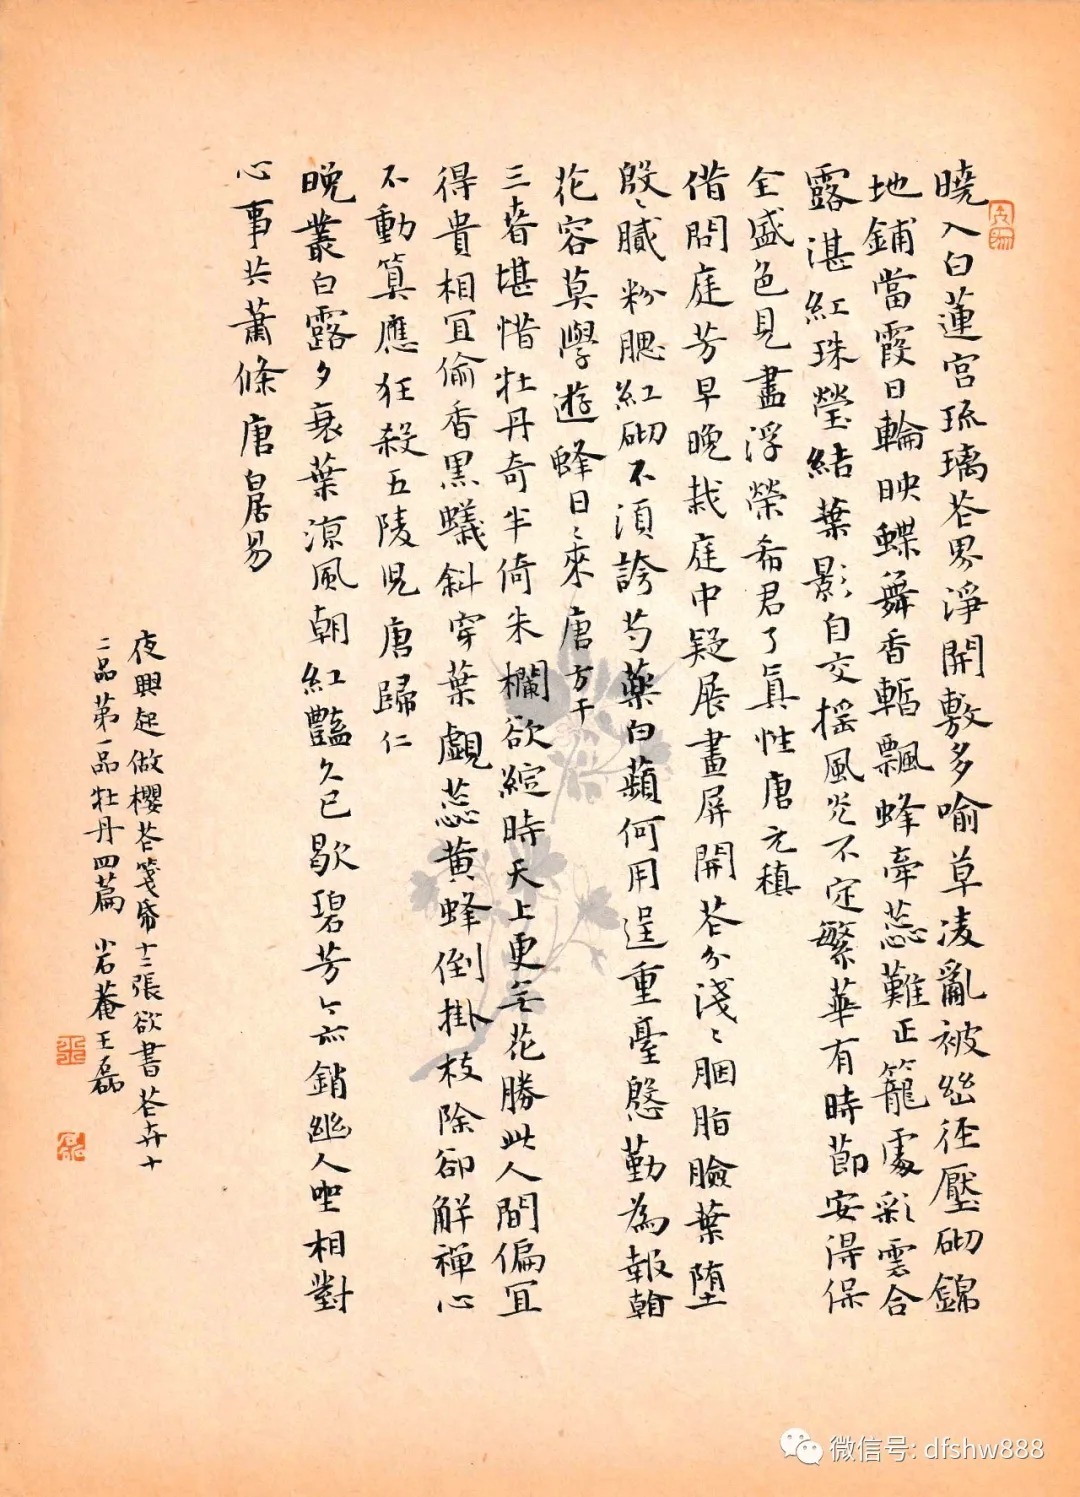 曉入白蓮宮琉璃花界淨開敷多喻草凌亂被幽徑壓砌錦
地鋪當霞日輪映蝶舞香暫飄蜂牽蕊難正籠處彩雲合
露湛紅珠瑩結葉影自交摇風光不定繁華有時節安得保
全盛色見盡浮榮希君了真性唐元稹
借問庭芳早晚栽庭中疑展畫屏開花分淺〻胭脂臉葉墮
殷〻膩粉腮紅砌不須誇芍藥白蘋何用逞重臺慇勤為報翰
花容莫學遊蜂日〻來唐方干
三春堪惜牡丹奇半倚朱欄欲綻時天上更無花勝此人間偏宜
得貴相宜偷香黑蟻斜穿葉覷蕊黃蜂倒掛枝除卻解禪心
不動算應狂殺五陵児唐歸仁
晚叢白露夕衰葉涼風朝紅豔久已歇碧芳今亦銷幽人坐相對
心事共蕭條唐白居易
夜興起做櫻花箋紙十二張欲書花卉十
二品第一品牡丹四篇 菴王磊
微信号: dfshw888